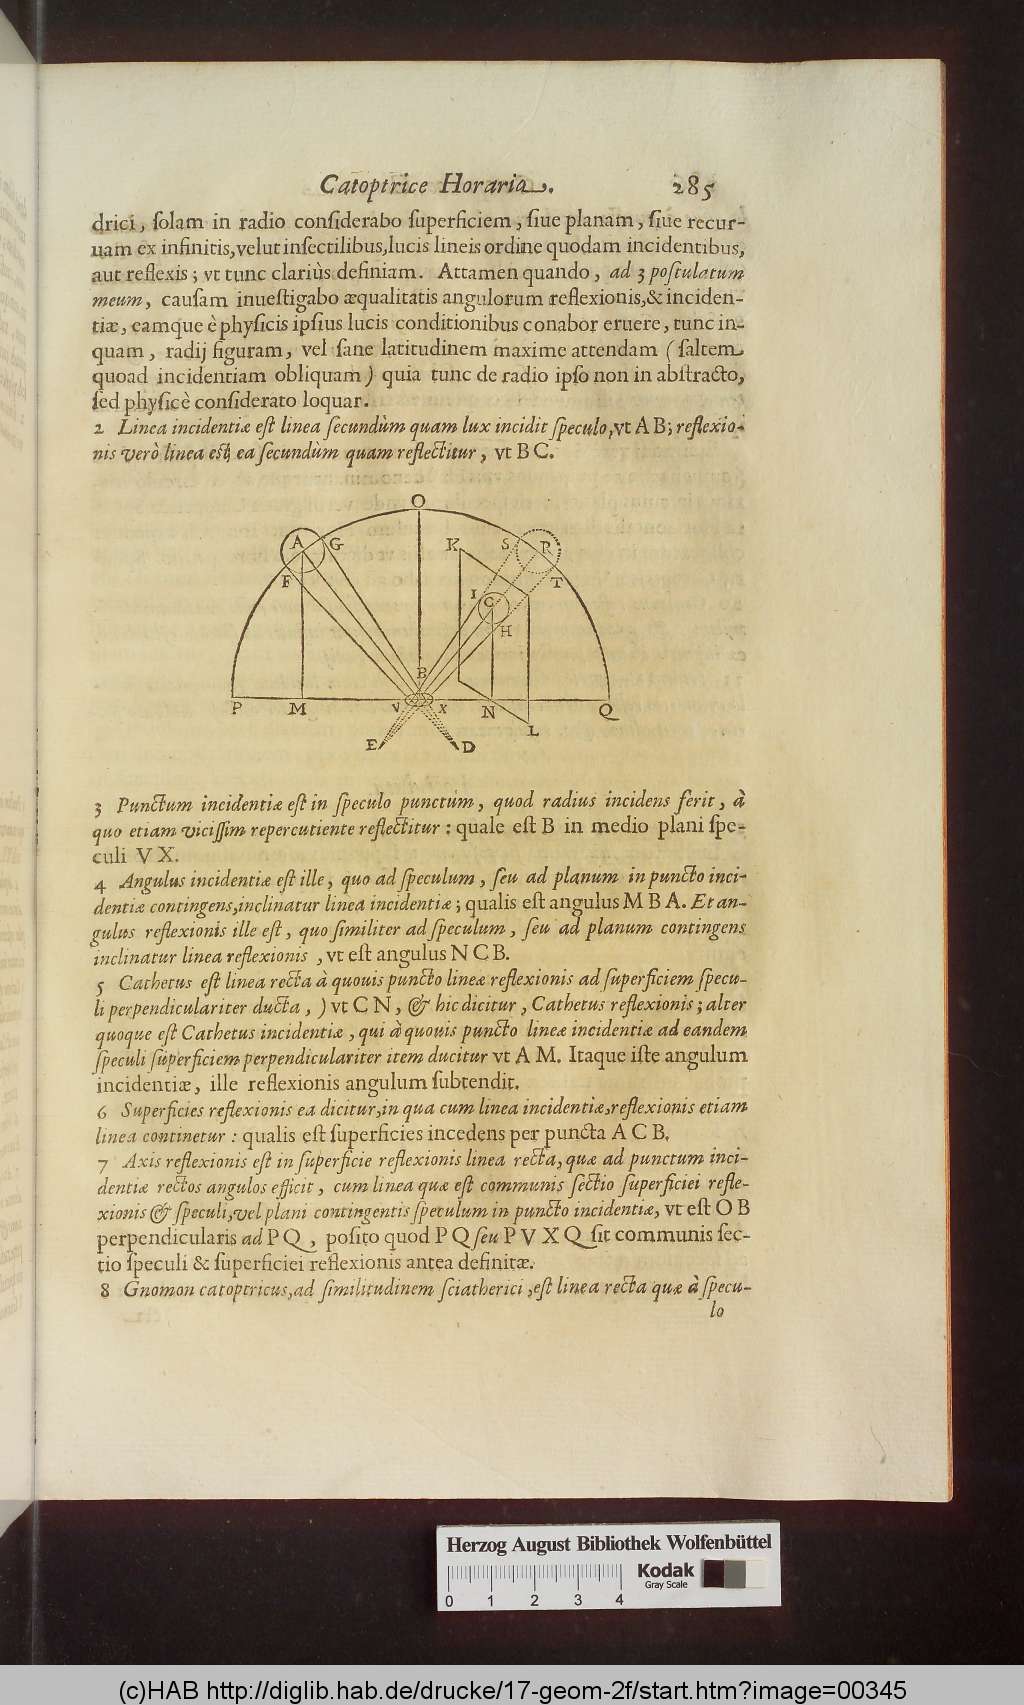 Catoptrice Horaria. 285
drici, ſolam in radio conſiderabo ſuperficiem, ſiue planam, ſiue recur-
uam ex infinitis, velut inſectilibus, lucis lineis ordine quodam incidentibus,
aut reflexis; vt tunc clariùs definiam. Attamen quando, ad 3 poſtulatum
meum, cauſam inueſtigabo æqualitatis angulorum reflexionis, & inciden-
tiæ, eamque è phyſicis ipſius lucis conditionibus conabor eruere, tunc in-
quam, radij figuram, vel ſane latitudinem maxime attendam (ſaltem
quoad incidentiam obliquam) quia tunc de radio ipſo non in abſtracto,
ſed phyſicè conſiderato loquar.
2 Linea incidentiæ eſt linea ſecundùm quam lux incidit ſpeculo, vt A B; reflexio-
nis verò linea eſt, ea ſecundùm quam reflectitur, vt B C.
O
A G K S R
F I C T
H
B
P M V X N Q
L
E D
3 Punctum incidentiæ eſt in ſpeculo punctum, quod radius incidens ferit, à
quo etiam viciſſim repercutiente reflectitur: quale eſt B in medio plani ſpe-
culi V X.
4 Angulus incidentiæ eſt ille, quo ad ſpeculum, ſeu ad planum in puncto inci-
dentiæ contingens, inclinatur linea incidentiæ; qualis eſt angulus M B A. Et an-
gulus reflexionis ille eſt, quo ſimiliter ad ſpeculum, ſeu ad planum contingens
inclinatur linea reflexionis, vt eſt angulus N C B.
5 Cathetus eſt linea recta à quouis puncto lineæ reflexionis ad ſuperficiem ſpecu-
li perpendiculariter ducta, ) vt C N, & hic dicitur, Cathetus reflexionis; alter
quoque eſt Cathetus incidentiæ, qui à quouis puncto lineæ incidentiæ ad eandem
ſpeculi ſuperficiem perpendiculariter item ducitur vt A M. Itaque iſte angulum
incidentiæ, ille reflexionis angulum ſubtendit.
6 Superficies reflexionis ea dicitur, in qua cum linea incidentiæ, reflexionis etiam
linea continetur: qualis eſt ſuperficies incedens per puncta A C B.
7 Axis reflexionis eſt in ſuperficie reflexionis linea recta, quæ ad punctum inci-
dentiæ rectos angulos efficit, cum linea quæ eſt communis ſectio ſuperficiei refle-
xionis & ſpeculi, vel plani contingentis ſpeculum in puncto incidentiæ, vt eſt O B
perpendicularis ad P Q, poſito quod P Q ſeu P V X Q ſit communis ſec-
tio ſpeculi & ſuperficiei reflexionis antea definitæ.
8 Gnomon catoptricus, ad ſimilitudinem ſciatherici, eſt linea recta quæ à ſpecu-
lo
Herzog August Bibliothek Wolfenbüttel
Kodak
Gray Scale
0 1 2 3 4
(c)HAB http://diglib.hab.de/drucke/17-geom-2f/start.htm?image=00345